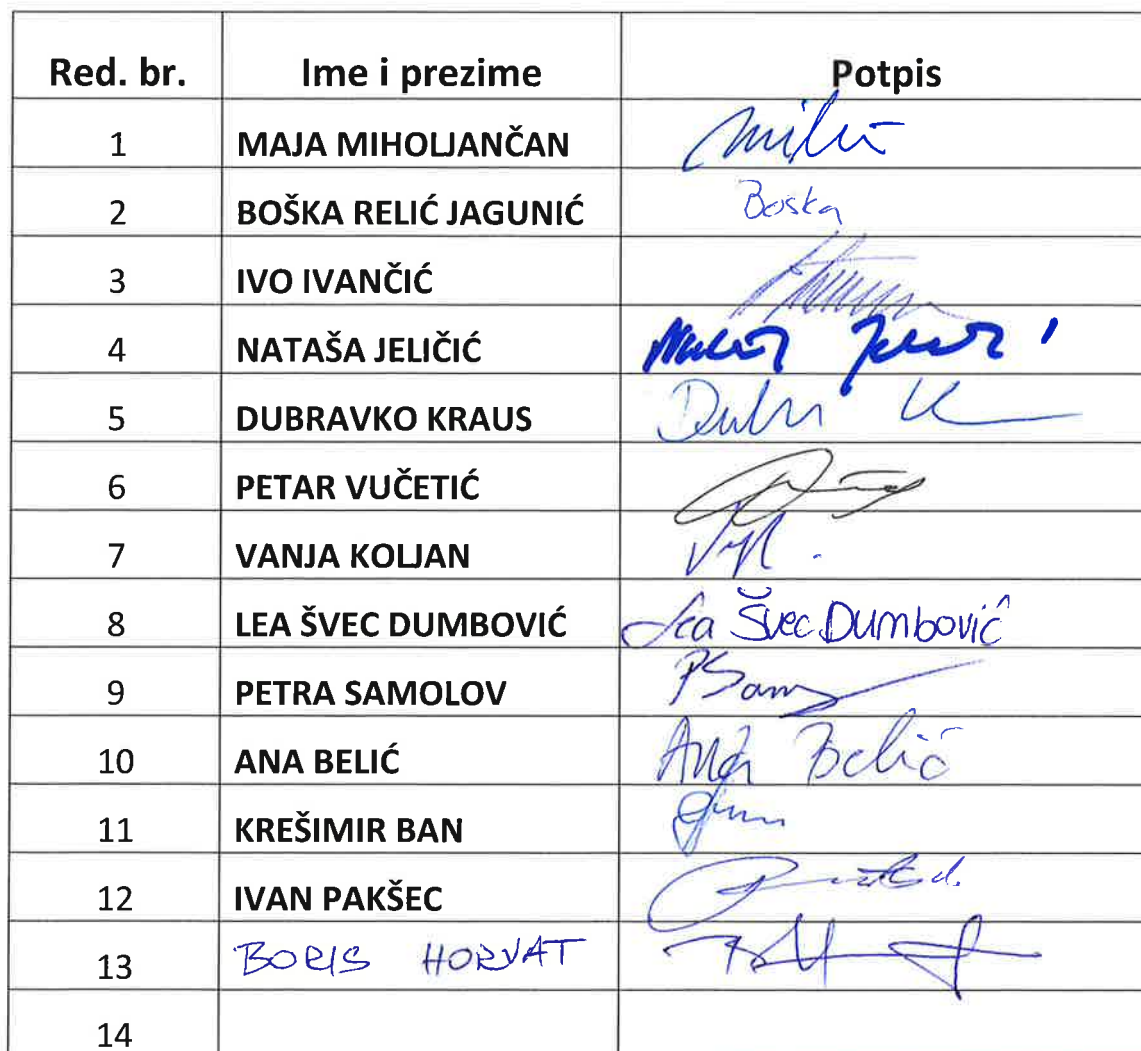 Red. br. Ime i prezime Potpis
1 MAJA MIHOLJANČAN
2 BOŠKA RELIĆ JAGUNIĆ Boska
3 IVO IVANČIĆ
4 NATAŠA JELIČIĆ
5 DUBRAVKO KRAUS
6 PETAR VUČETIĆ
7 VANJA KOLJAN
8 LEA ŠVEC DUMBOVIĆ Lea Švec Dumbović
9 PETRA SAMOLOV
10 ANA BELIĆ Ana Belić
11 KREŠIMIR BAN
12 IVAN PAKŠEC
13 BORIS HORVAT
14